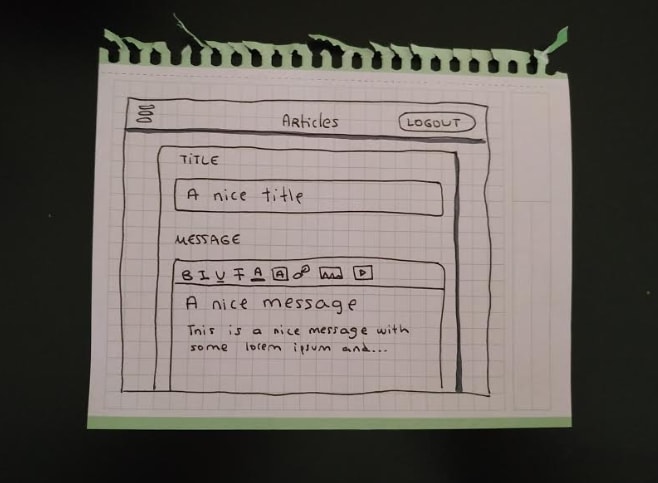 Articles
LOGOUT
TITLE
A nice title
MESSAGE
B I U T A A
A nice message
This is a nice message with
some lorem ipsum and...